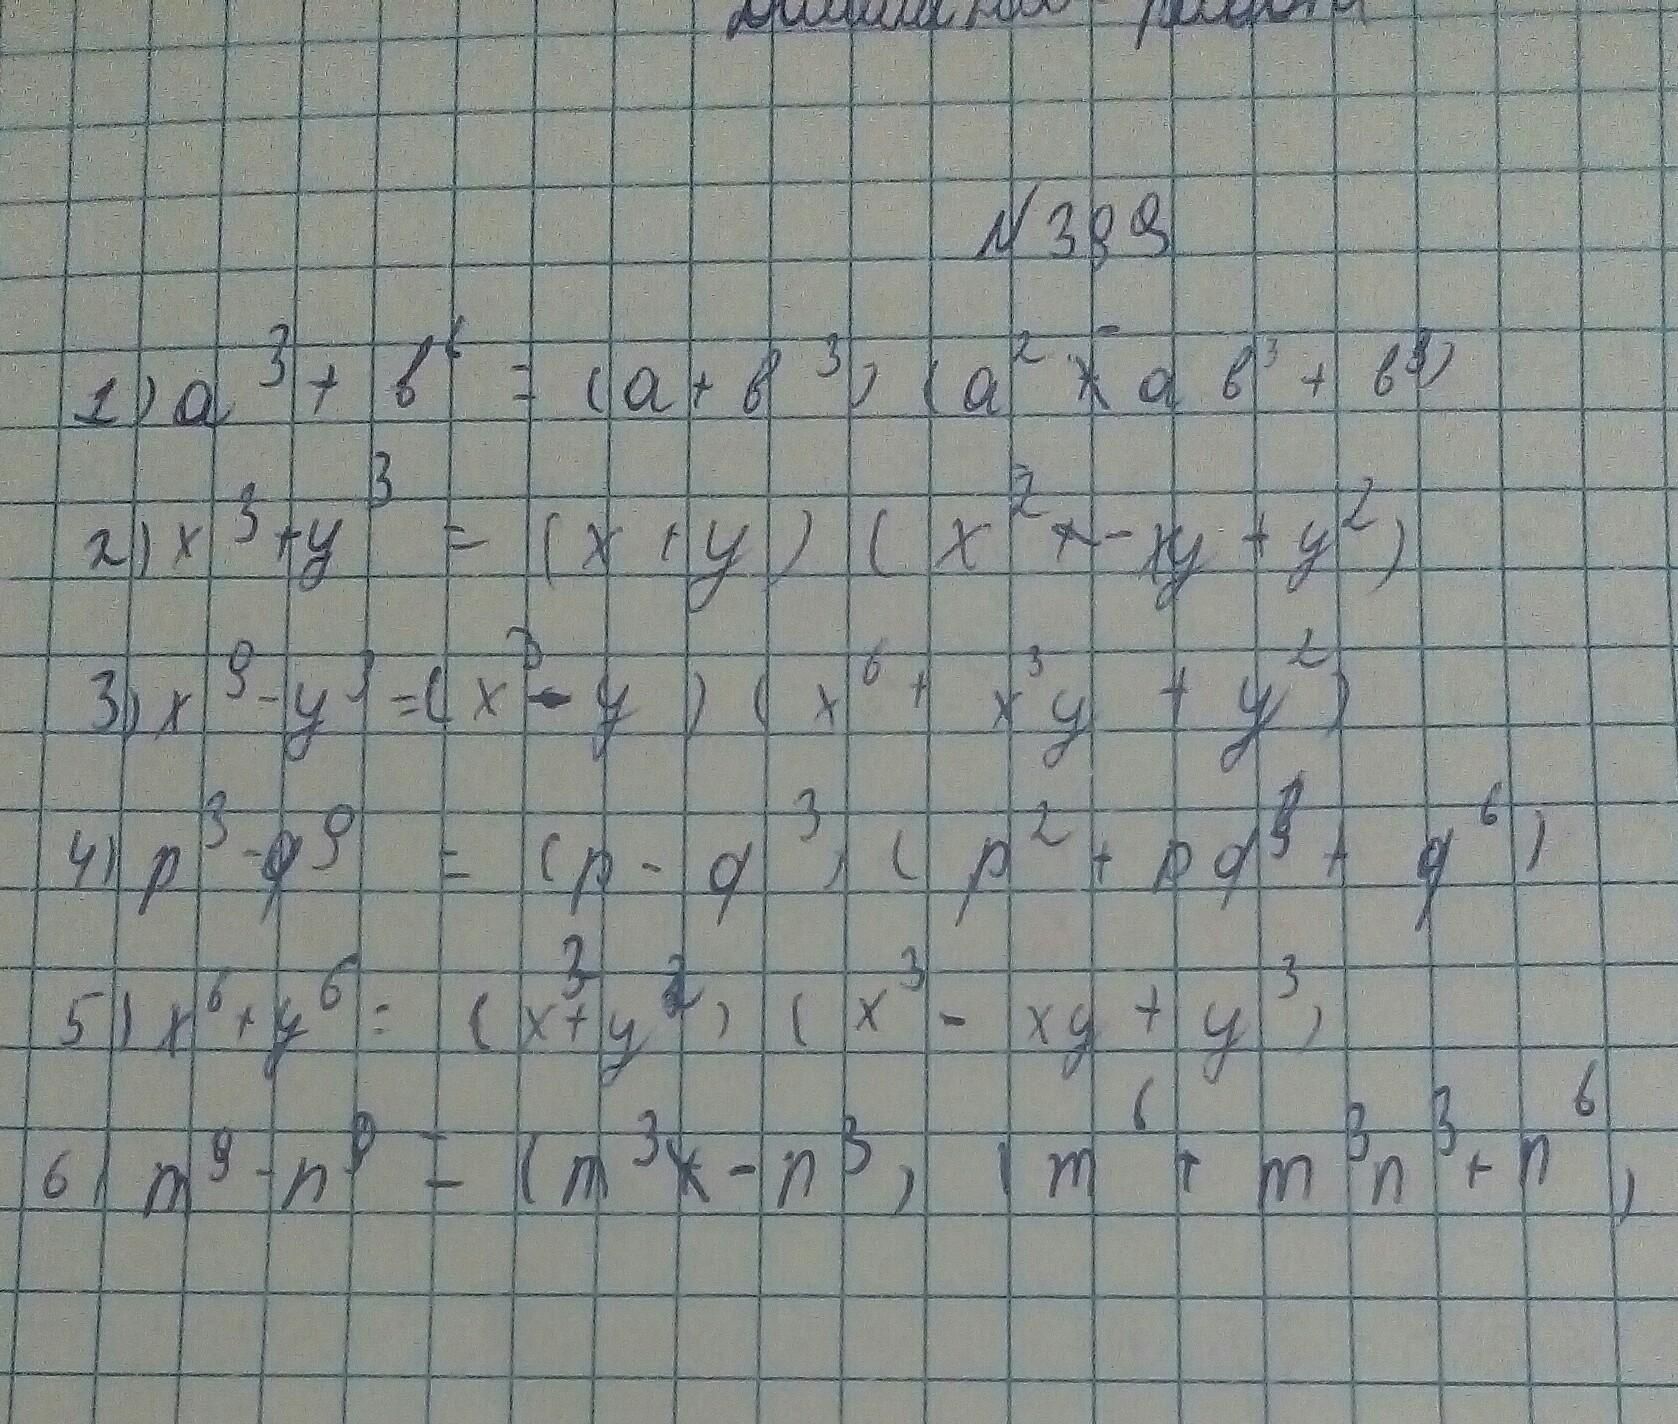 Домашняя работа
N 399
1) a³ + b⁶ = (a + b³) (a² - a b³ + b⁹)
2) x³ + y³ = (x + y) (x² - xy + y²)
3) x⁹ - y³ = (x³ - y) (x⁶ + x³y + y²)
4) p³ - q⁹ = (p - q³) (p² + pq³ + q⁶)
5) x⁶ + y⁶ = (x³ + y²) (x³ - xy + y³)
6) m⁹ - n⁹ = (m³ - n³) (m⁶ + m³n³ + n⁶)